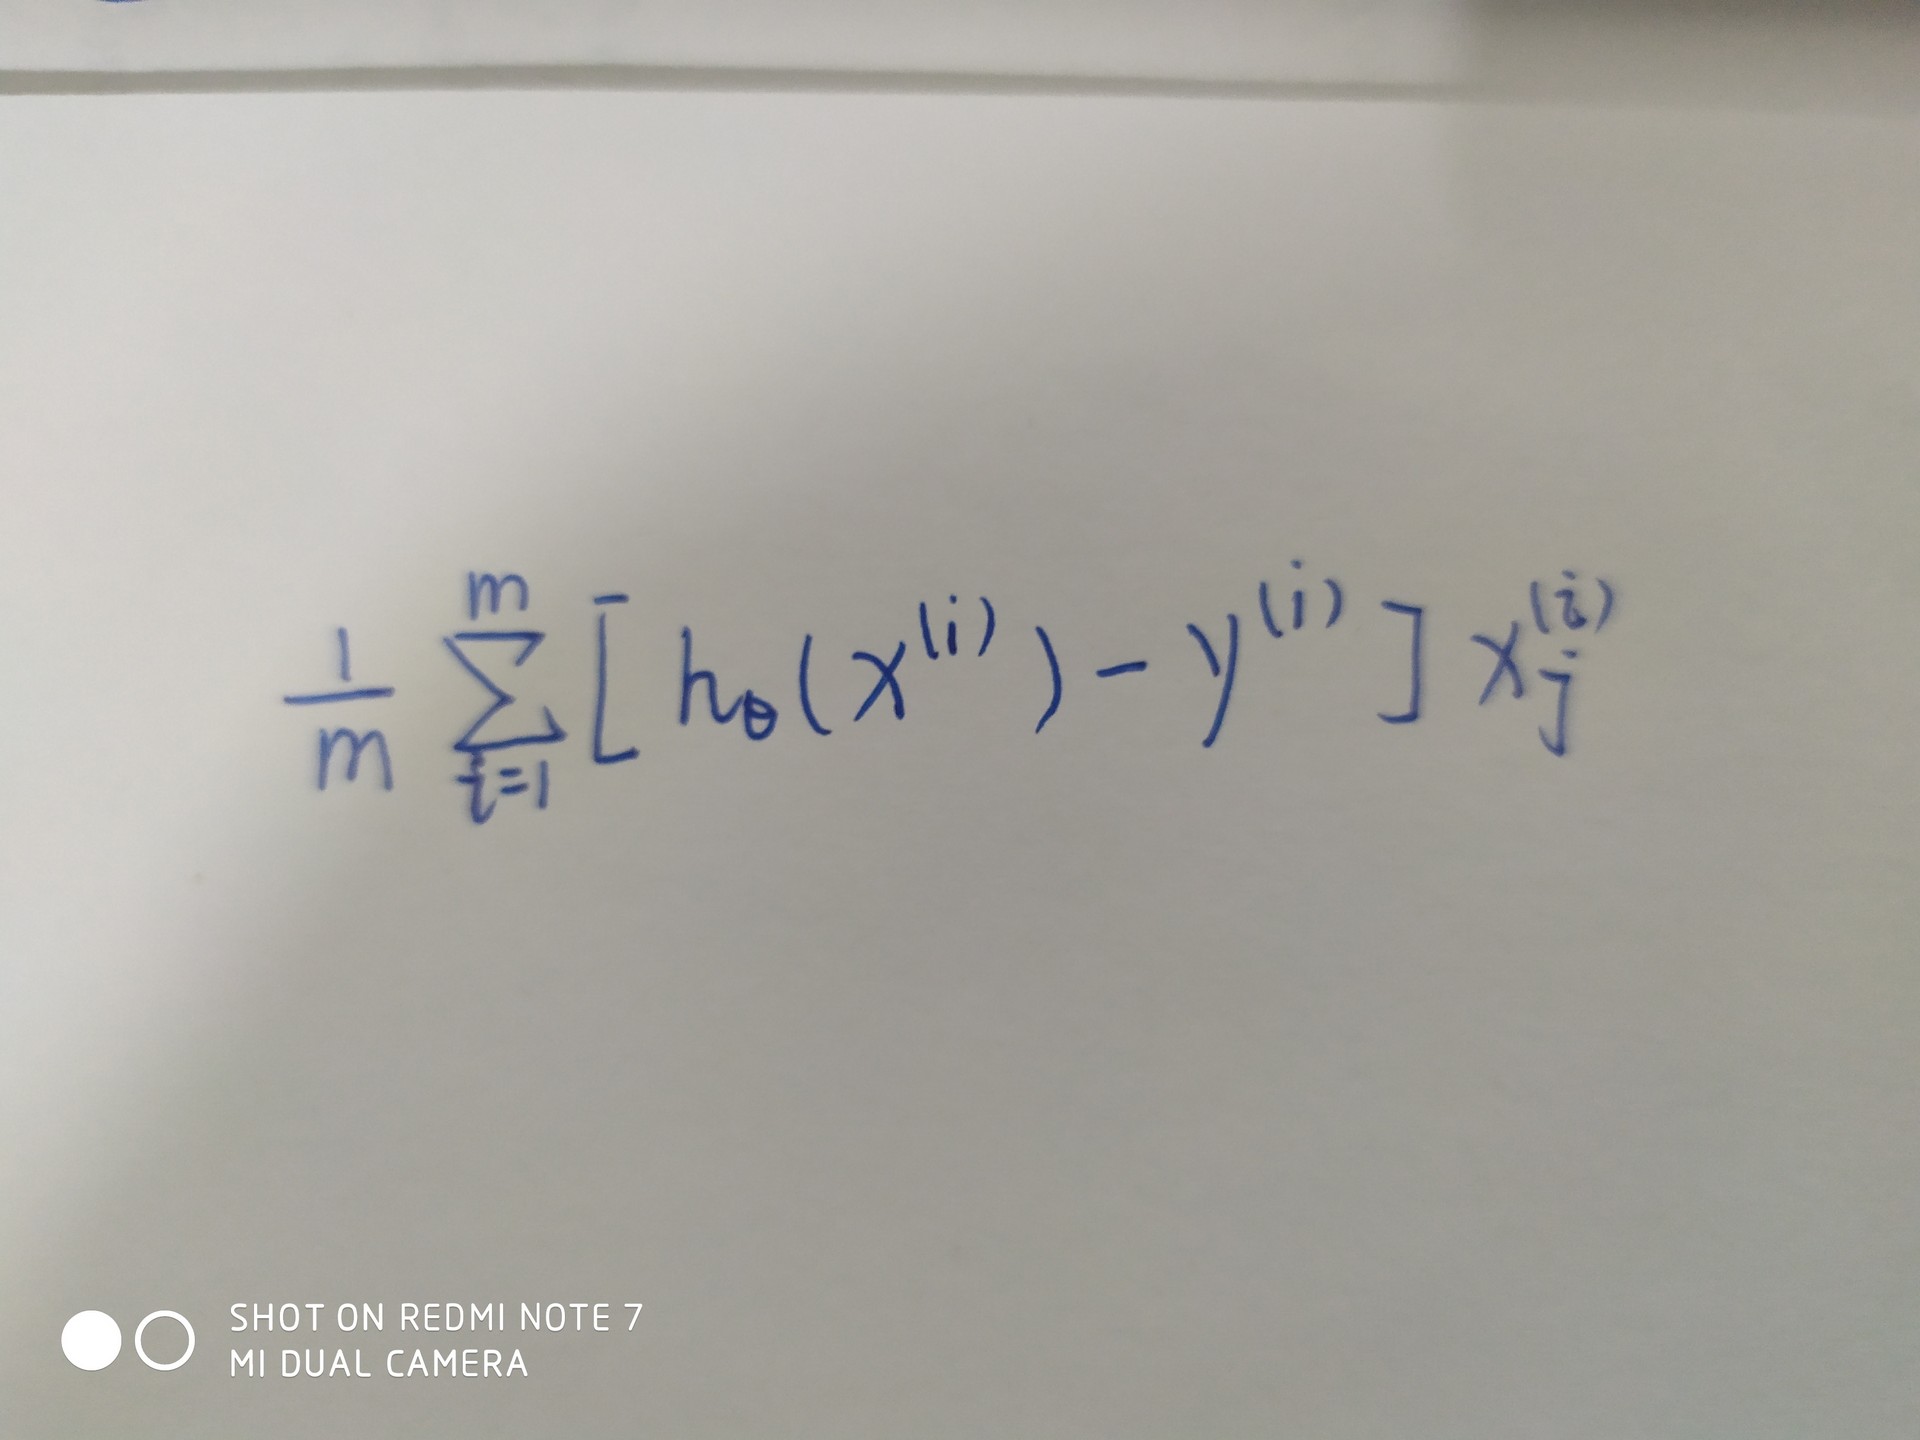 \frac{1}{m} \sum_{i=1}^{m} [ h_θ ( x^{(i)} ) - y^{(i)} ] x_j^{(i)}
SHOT ON REDMI NOTE 7
MI DUAL CAMERA